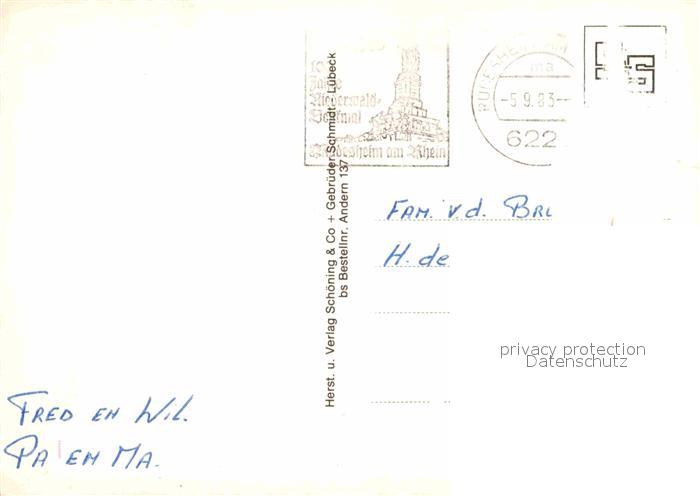 Jahre
Niederwald-
Denkmal
Rüdesheim am Rhein
RÜDESHEIM AM
ma
-5.9.83--
622
Herst. u. Verlag Schöning & Co + Gebrüder Schmidt - Lübeck
bs Bestellnr. Andern 137
FAM. v.d. BRU
H. de
privacy protection
Datenschutz
FRED EN WIL.
PA EN MA.